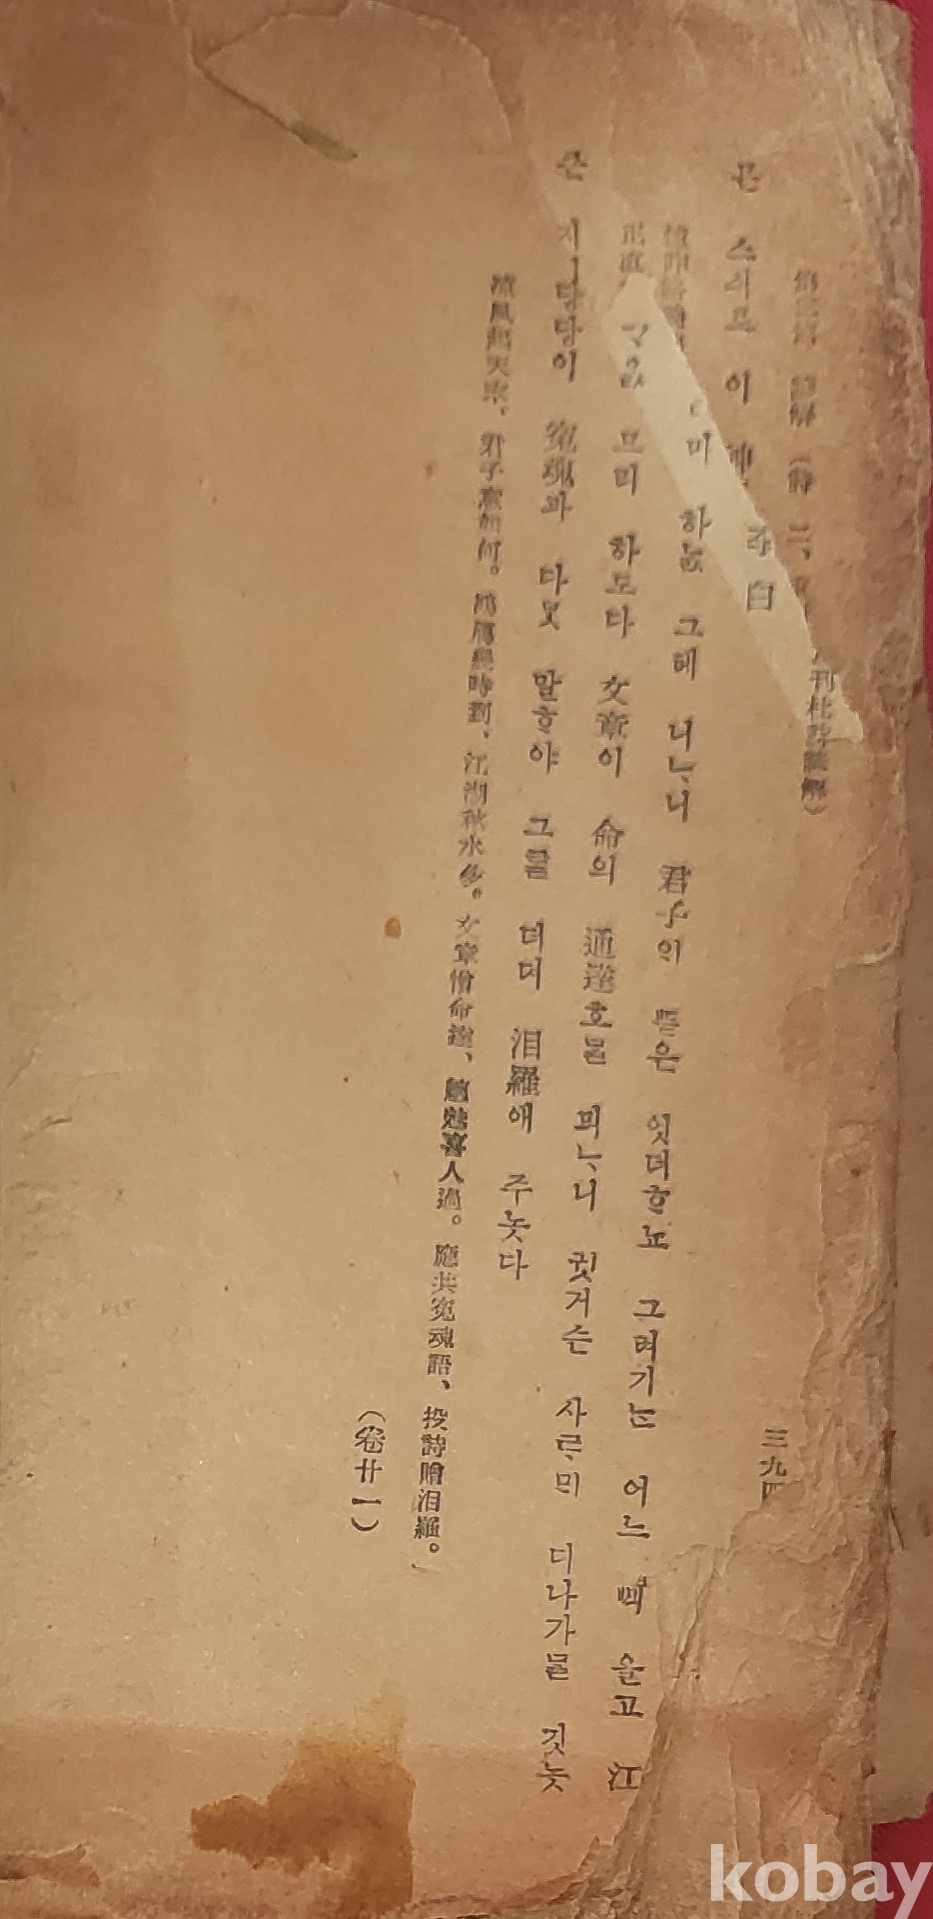 刊杜詩諺解)
三九四
스리고 이
白
미 하ᄂᆞᆳ 그테 니ᄂᆞ니 君子의 ᄠᅳᆮ은 엇더ᄒᆞ뇨 그려기는 어느 ᄢᅴ 올고 江
므리 하도다 文章이 命의 通達호믈 믜ᄂᆞ니 귓거슨 사ᄅᆞᄆᆡ 디나가믈 깃놋
당당이 寃魂과 다못 말ᄒᆞ야 그를 더뎌 汨羅애 주놋다
凉風起天末、君子意如何。鴻雁幾時到、江湖秋水多。文章憎命達、魑魅喜人過。應共寃魂語、投詩贈汨羅。」
(卷廿一)
kobay